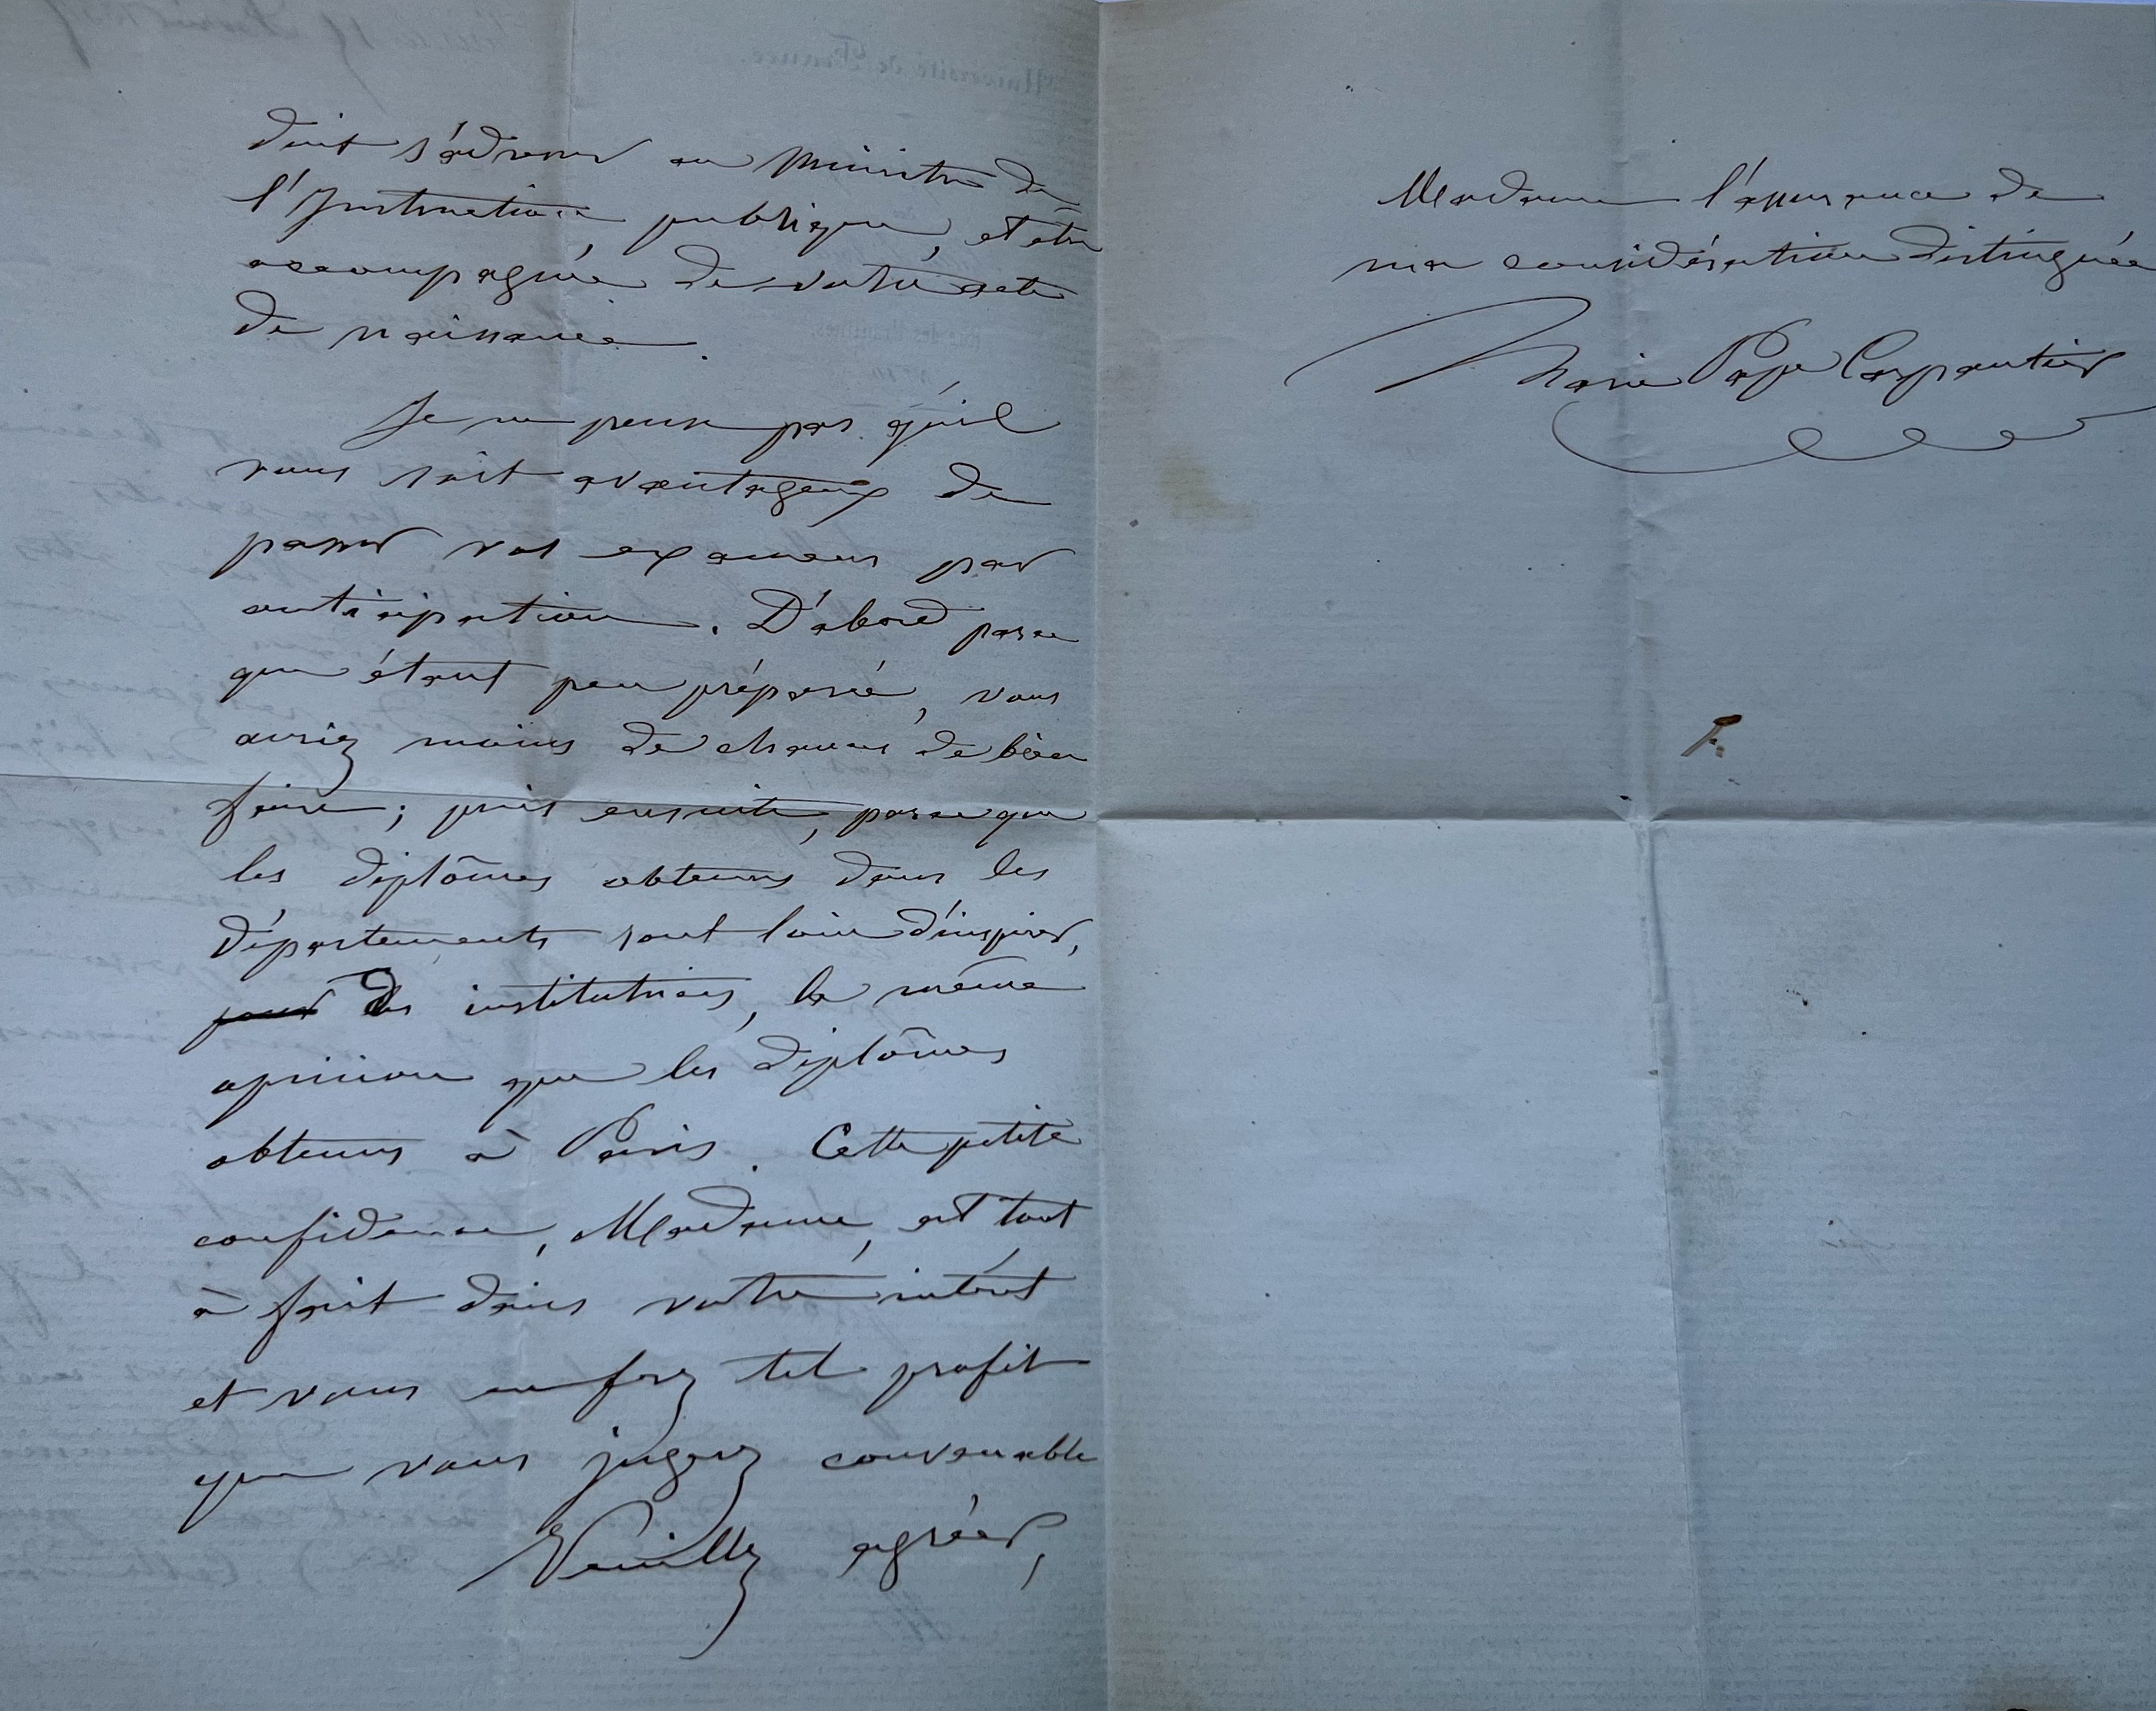 doit s'adresser au Ministre de
l'Instruction publique, et être
accompagnée de votre acte
de naissance.
Je ne pense pas qu'il
vous soit avantageux de
passer vos examens par
anticipation. D'abord parce
que étant peu préparée, vous
auriez moins de chances de bien
faire; puis ensuite, parce que
les diplômes obtenus dans les
départements sont loin d'inspirer,
pour des institutrices, la même
opinion que les diplômes
obtenus à Paris. Cette petite
confidence, Madame, est tout
à fait dans votre intérêt
et vous en ferez tel profit
que vous jugerez convenable
Veuillez agréer,
Madame l'assurance de
ma considération distinguée
Marie Pape Carpantier
Université de France.